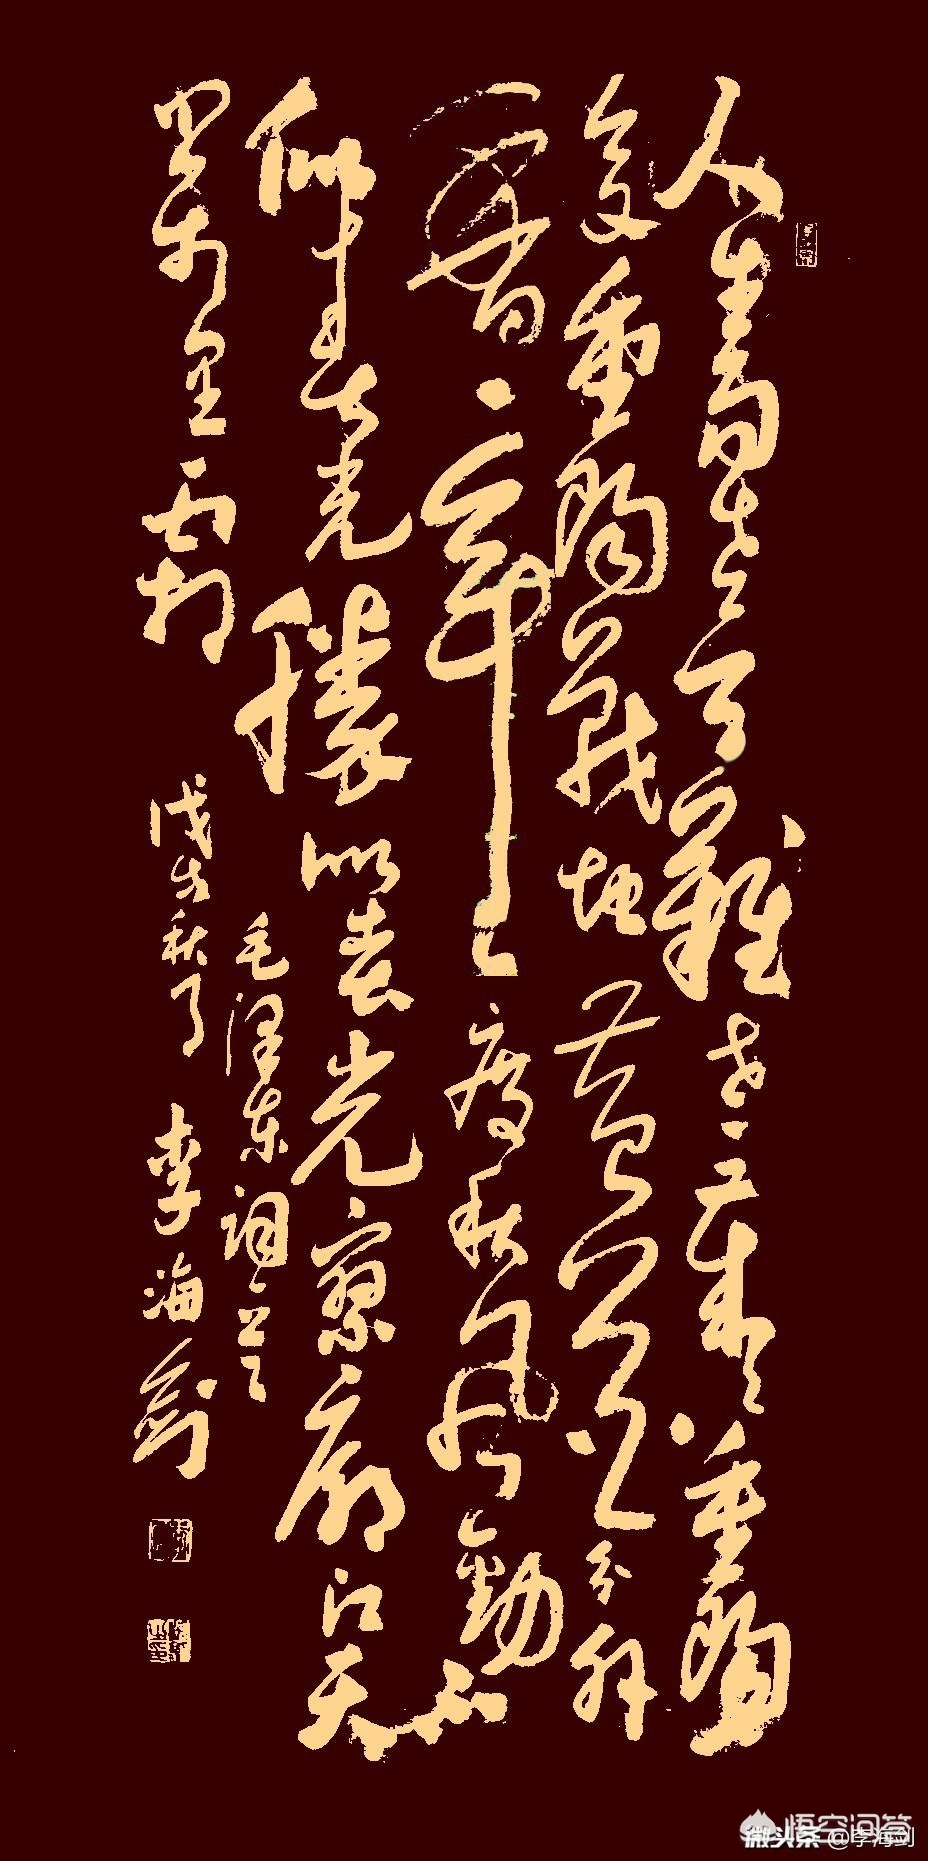 人生易老天難老歲歲重陽
今又重陽戰地黄花分外
香一年一度秋风勁不
似春光勝似春光寥廓江天
万里霜
毛泽东词
戊戌秋月 李海剑
悟空问答
微头条 @李海剑